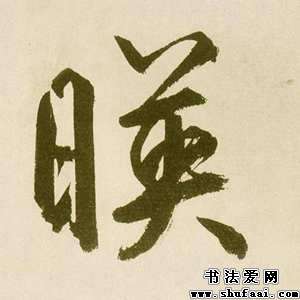 暎
书法爱网
www.shufaai.com